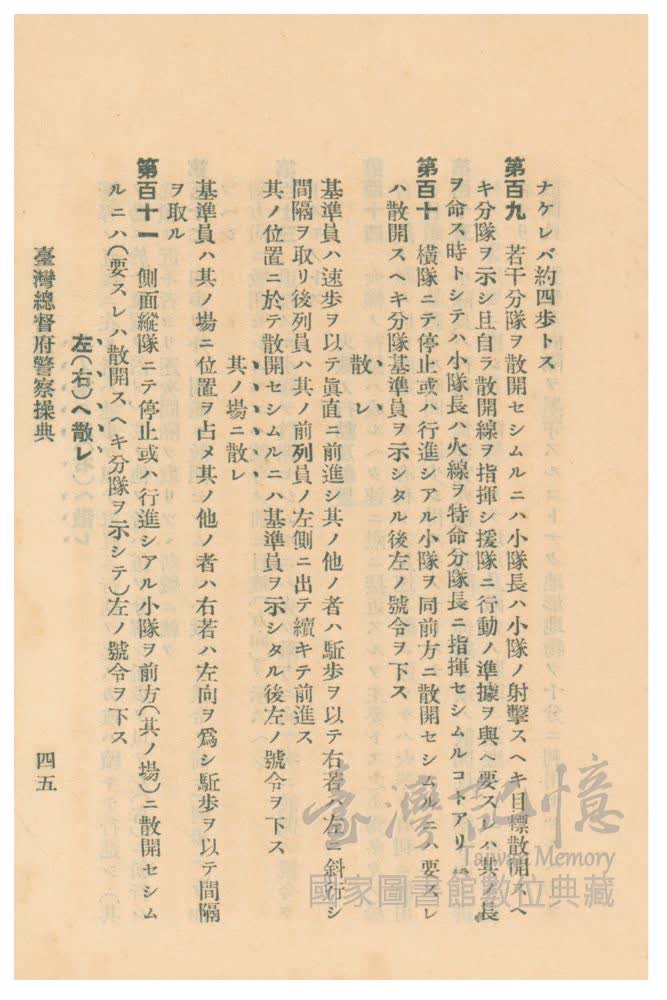 ナケレバ約四歩トス
第百九　若干分隊ヲ散開セシムルニハ小隊長ハ小隊ノ射擊スヘキ目標散開スヘ
キ分隊ヲ示シ且自ラ散開線ヲ指揮シ援隊ニ行動ノ準據ヲ與ヘ要スレハ其ノ長
ヲ命ス時トシテハ小隊長ハ火線ヲ特命分隊長ニ指揮セシムルコトアリ
第百十　橫隊ニテ停止或ハ行進シアル小隊ヲ同前方ニ散開セシムルニハ要スレ
ハ散開スヘキ分隊基準員ヲ示シタル後左ノ號令ヲ下ス
散レ
基準員ハ速歩ヲ以テ眞直ニ前進シ其ノ他ノ者ハ駈歩ヲ以テ右若ハ左ニ斜行シ
間隔ヲ取リ後列員ハ其ノ前列員ノ左側ニ出テ續キテ前進ス
其ノ位置ニ於テ散開セシムルニハ基準員ヲ示シタル後左ノ號令ヲ下ス
其ノ場ニ散レ
基準員ハ其ノ場ニ位置ヲ占メ其ノ他ノ者ハ右若ハ左向ヲ爲シ駈歩ヲ以テ間隔
ヲ取ル
第百十一　側面縱隊ニテ停止或ハ行進シアル小隊ヲ前方(其ノ場)ニ散開セシム
ルニハ(要スレハ散開スヘキ分隊ヲ示シテ)左ノ號令ヲ下ス
左(右)ヘ散レ
臺灣總督府警察操典
四五
臺灣記憶
Taiwan Memory
國家圖書館數位典藏